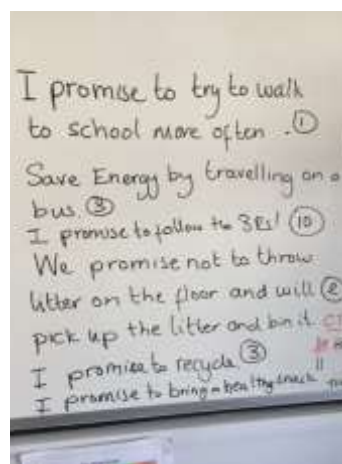 I promise to try to walk
to school more often . ①
Save Energy by travelling on a
bus ③
I promise to follow the 3Rs! ⑩
We promise not to throw
litter on the floor and will ②
pick up the litter and bin it.
I promise to recycle ③
I promise to bring a healthy snack